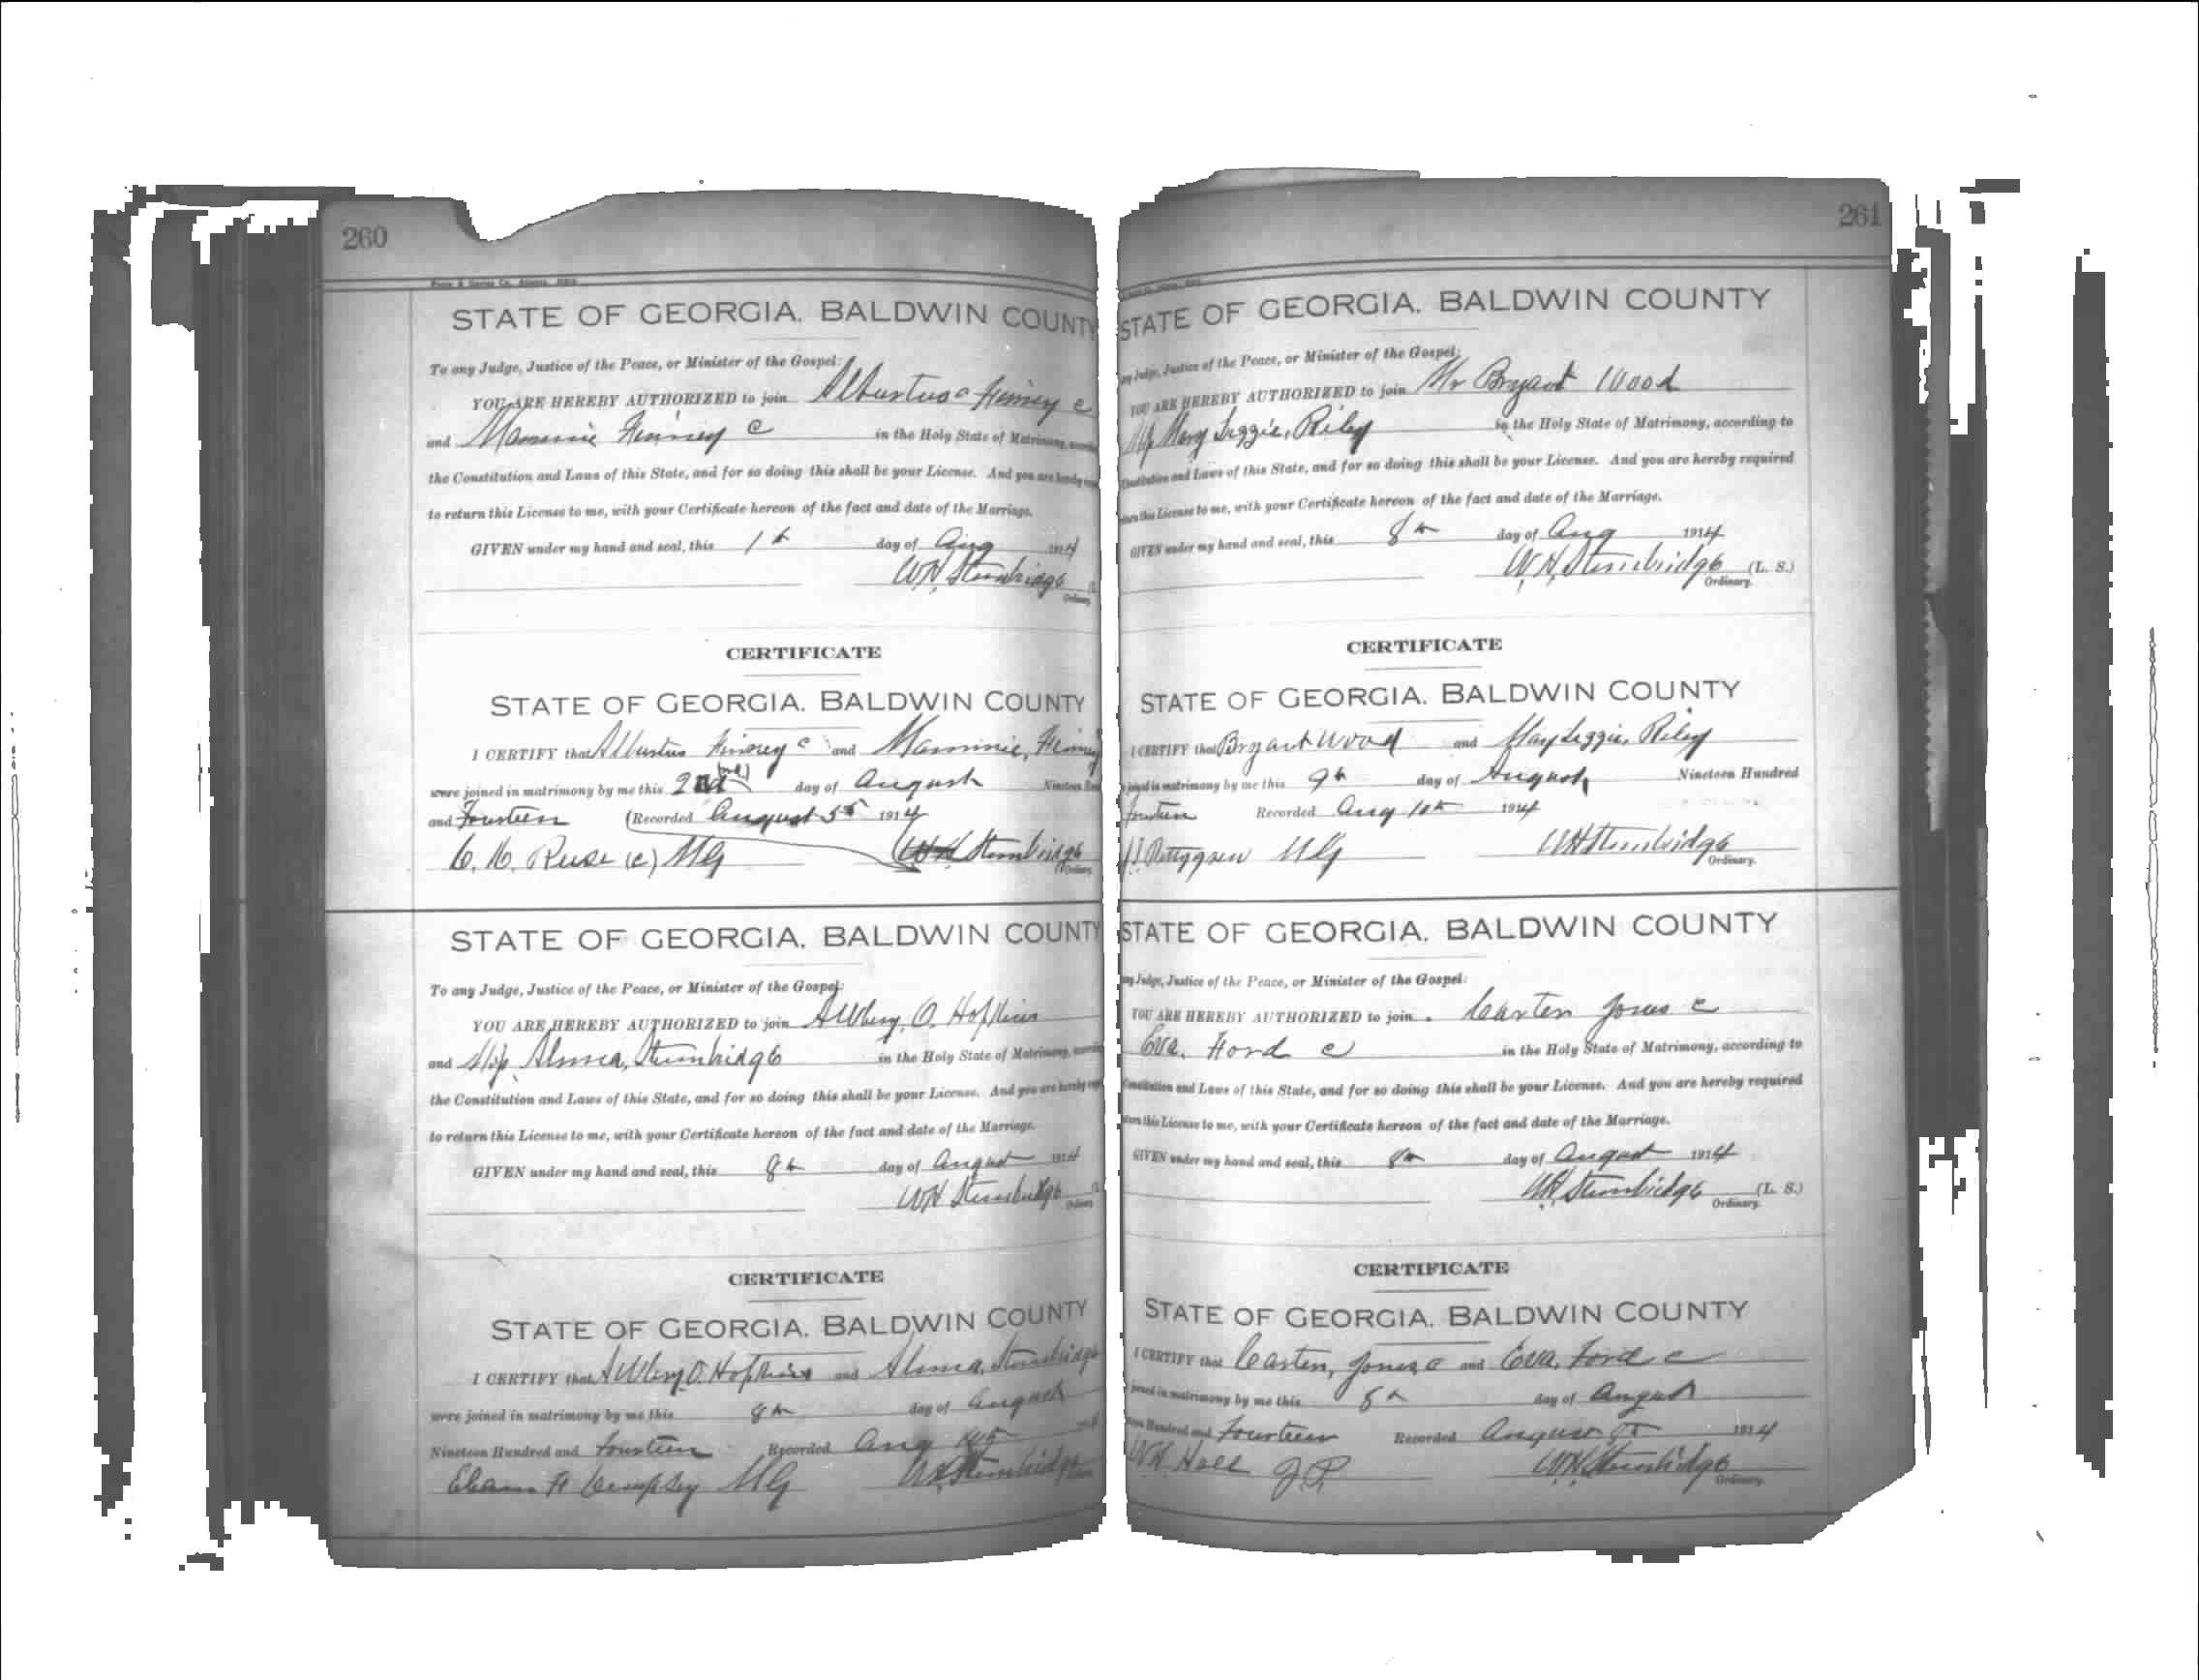 260
STATE OF GEORGIA. BALDWIN COUNTY
To any Judge, Justice of the Peace, or Minister of the Gospel:
YOU ARE HEREBY AUTHORIZED to join Finney c
and Mammie Finney c in the Holy State of Matrimony,
the Constitution and Laws of this State, and for so doing this shall be your License. And you are hereby
to return this License to me, with your Certificate hereon of the fact and date of the Marriage.
GIVEN under my hand and seal, this 1st day of Aug 1914
W.H. Stembridge
Ordinary
CERTIFICATE
STATE OF GEORGIA. BALDWIN COUNTY
I CERTIFY that Albertus Finney c and Mammie, Finney
were joined in matrimony by me this 2nd day of August Nineteen
and Fourteen (Recorded August 5th 1914
(c) MG W.H. Stembridge
Ordinary
STATE OF GEORGIA. BALDWIN COUNTY
To any Judge, Justice of the Peace, or Minister of the Gospel:
YOU ARE HEREBY AUTHORIZED to join O. Hopkins
and Alma, Stembridge in the Holy State of Matrimony,
the Constitution and Laws of this State, and for so doing this shall be your License. And you are hereby
to return this License to me, with your Certificate hereon of the fact and date of the Marriage.
GIVEN under my hand and seal, this 8th day of August 1914
W.H. Stembridge
Ordinary
CERTIFICATE
STATE OF GEORGIA. BALDWIN COUNTY
I CERTIFY that O. Hopkins and Alma, Stembridge
were joined in matrimony by me this 8th day of August
Nineteen Hundred and fourteen Recorded Aug
Dempsey MG W.H. Stembridge
261
STATE OF GEORGIA. BALDWIN COUNTY
Judge, Justice of the Peace, or Minister of the Gospel:
YOU ARE HEREBY AUTHORIZED to join Mr Bryant Wood
Mary Lizzie, Riley in the Holy State of Matrimony, according to
Constitution and Laws of this State, and for so doing this shall be your License. And you are hereby required
this License to me, with your Certificate hereon of the fact and date of the Marriage.
GIVEN under my hand and seal, this 8th day of Aug 1914
W.H. Stembridge (L. S.)
Ordinary.
CERTIFICATE
STATE OF GEORGIA. BALDWIN COUNTY
I CERTIFY that Bryant Wood and May Lizzie, Riley
joined in matrimony by me this 9th day of August, Nineteen Hundred
fourteen Recorded Aug 10th 1914
MG W.H. Stembridge
Ordinary.
STATE OF GEORGIA. BALDWIN COUNTY
any Judge, Justice of the Peace, or Minister of the Gospel:
YOU ARE HEREBY AUTHORIZED to join Carter Jones c
Eva. Ford c in the Holy State of Matrimony, according to
Constitution and Laws of this State, and for so doing this shall be your License. And you are hereby required
this License to me, with your Certificate hereon of the fact and date of the Marriage.
GIVEN under my hand and seal, this 8th day of August 1914
W.H. Stembridge (L. S.)
Ordinary.
CERTIFICATE
STATE OF GEORGIA. BALDWIN COUNTY
I CERTIFY that Carter, Jones, c and Eva, Ford c
joined in matrimony by me this 8th day of August
Hundred and Fourteen Recorded August 1914
W.H. Hall J.P. W.H. Stembridge
Ordinary.